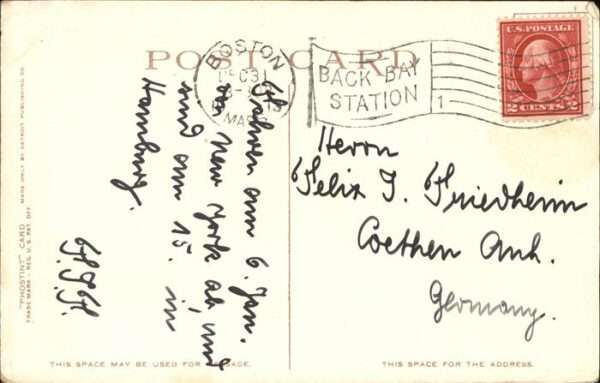 POST CARD
BOSTON
MASS
BACK BAY
STATION
1
U.S. POSTAGE
2 CENTS 2
Fahren am 6. Jan.
von New York ab, und
sind am 15. in
Hamburg.
Herrn
Felix J. Friedheim
Coethen Anh.
Germany.
"PHOSTINT" CARD MADE ONLY BY DETROIT PUBLISHING CO.
TRADE MARK - REG. U.S. PAT. OFF.
THIS SPACE MAY BE USED FOR
THIS SPACE FOR THE ADDRESS.